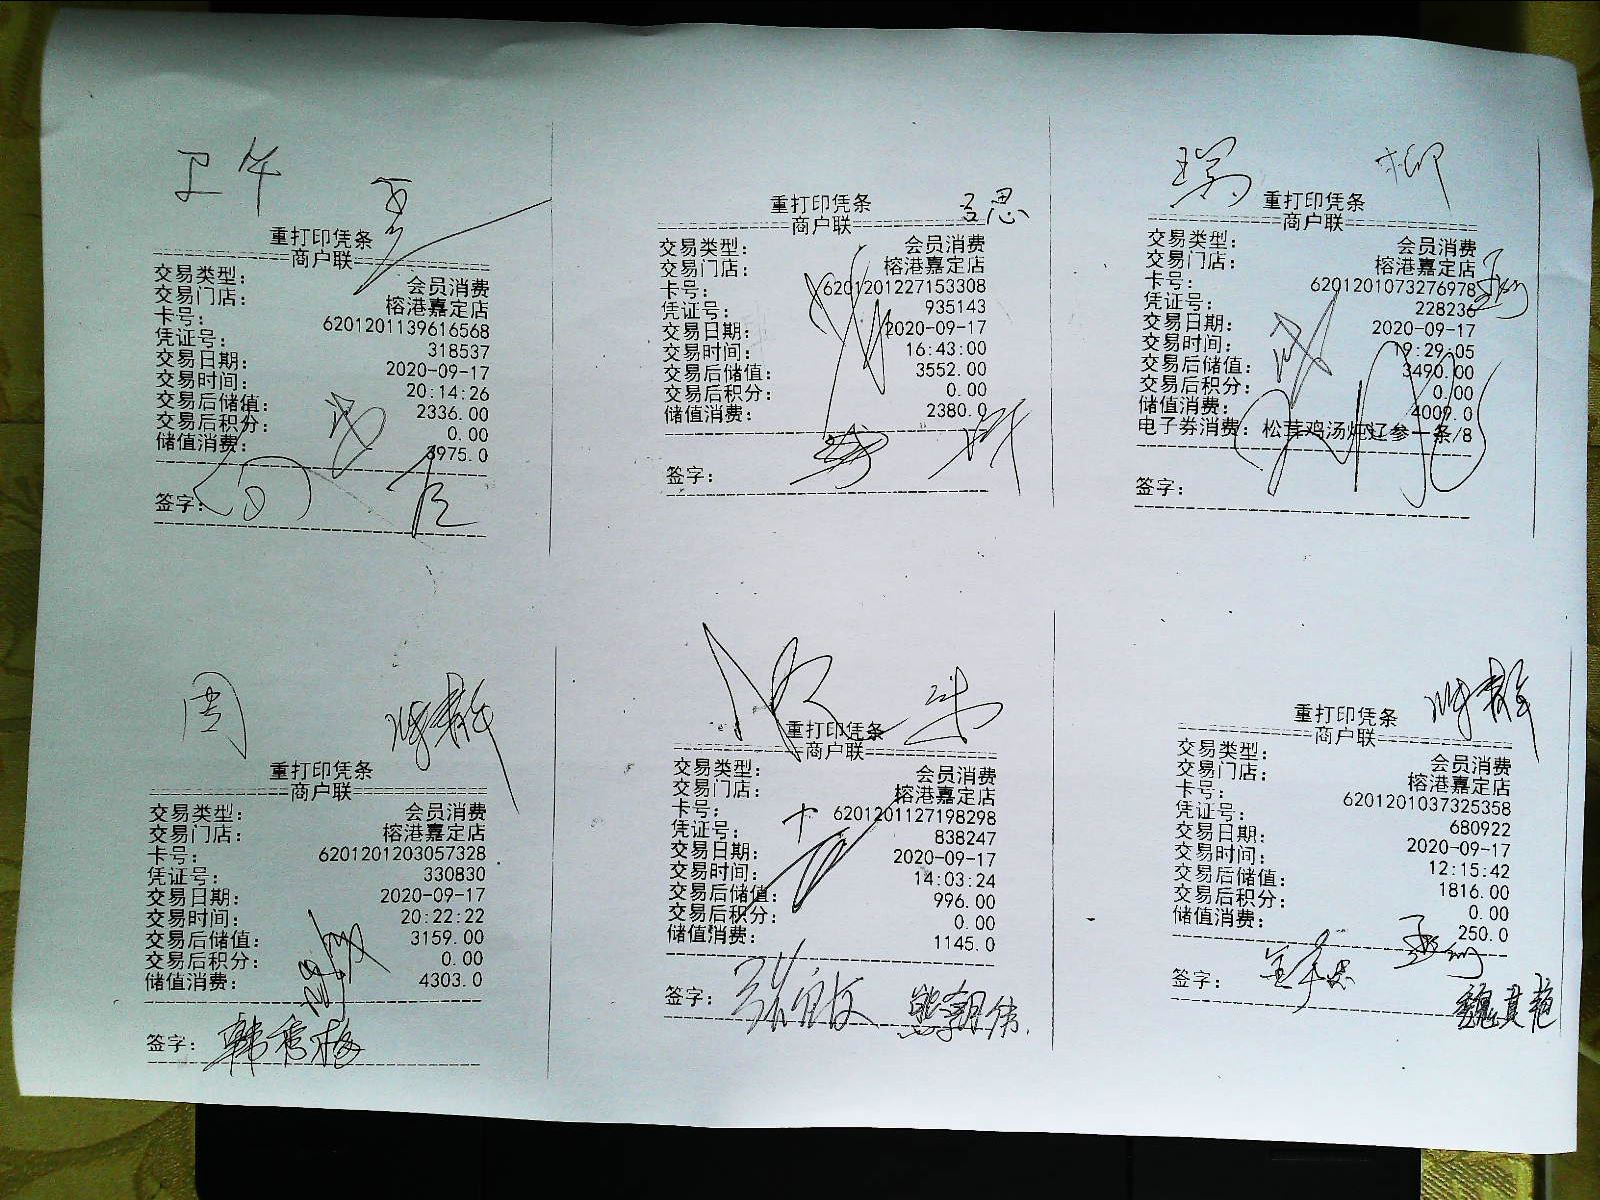 卫午
重打印凭条
商户联
交易类型: 会员消费
交易门店: 榕港嘉定店
卡号: 6201201139616568
凭证号: 318537
交易日期: 2020-09-17
交易时间: 20:14:26
交易后储值: 2336.00
交易后积分: 0.00
储值消费: 3975.0
签字:
重打印凭条
商户联
交易类型: 会员消费
交易门店: 榕港嘉定店
卡号: 6201201227153308
凭证号: 935143
交易日期: 2020-09-17
交易时间: 16:43:00
交易后储值: 3552.00
交易后积分: 0.00
储值消费: 2380.0
签字:
瑞 柳
重打印凭条
商户联
交易类型: 会员消费
交易门店: 榕港嘉定店
卡号: 6201201073276978
凭证号: 228236
交易日期: 2020-09-17
交易时间: 19:29:05
交易后储值: 3490.00
交易后积分: 0.00
储值消费: 4009.0
电子券消费: 松茸鸡汤炖辽参一条/8
签字:
周
重打印凭条
商户联
交易类型: 会员消费
交易门店: 榕港嘉定店
卡号: 6201201203057328
凭证号: 330830
交易日期: 2020-09-17
交易时间: 20:22:22
交易后储值: 3159.00
交易后积分: 0.00
储值消费: 4303.0
签字: 韩秀梅
重打印凭条
商户联
交易类型: 会员消费
交易门店: 榕港嘉定店
卡号: 6201201127198298
凭证号: 838247
交易日期: 2020-09-17
交易时间: 14:03:24
交易后储值: 996.00
交易后积分: 0.00
储值消费: 1145.0
签字:
重打印凭条
商户联
交易类型: 会员消费
交易门店: 榕港嘉定店
卡号: 6201201037325358
凭证号: 680922
交易日期: 2020-09-17
交易时间: 12:15:42
交易后储值: 1816.00
交易后积分: 0.00
储值消费: 250.0
签字: